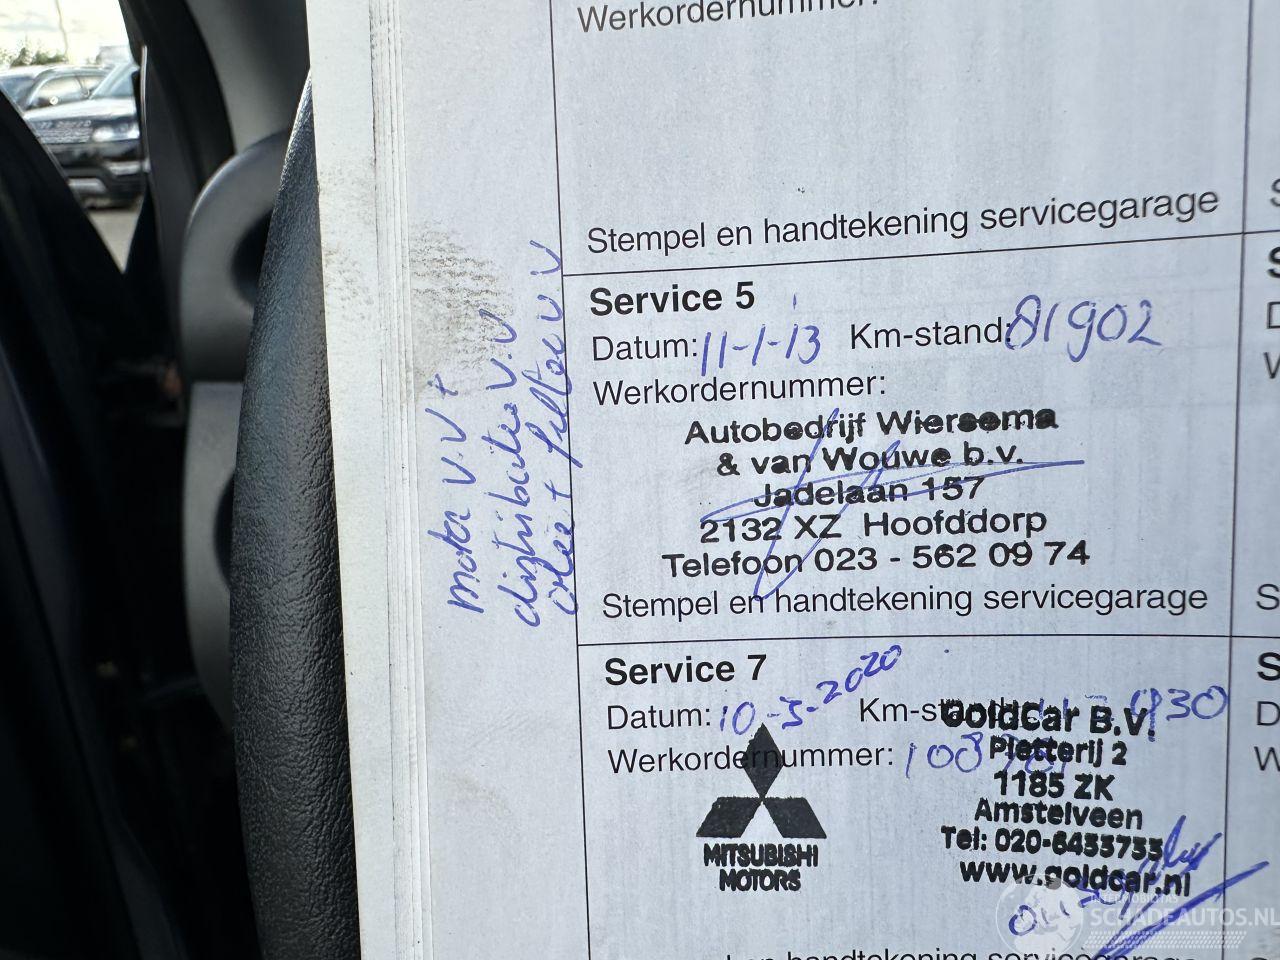 Werkordernummer:
Stempel en handtekening servicegarage
Service 5
Datum: 11-1-13 Km-stand: 81902
Werkordernummer:
Autobedrijf Wiersema
& van Wouwe b.v.
Jadelaan 157
2132 XZ Hoofddorp
Telefoon 023 - 562 09 74
Stempel en handtekening servicegarage
motor V.V +
distributie V.V
olie + filter V.V
Service 7
Datum: 10-3-2020 Km-stand:
Werkordernummer:
GoldCar B.V.
Pletterij 2
1185 ZK
Amstelveen
Tel: 020-6433733
www.goldcar.nl
MITSUBISHI
MOTORS
INTERMOBILITAS
SCHADEAUTOS.NL
handtekening servicegarage